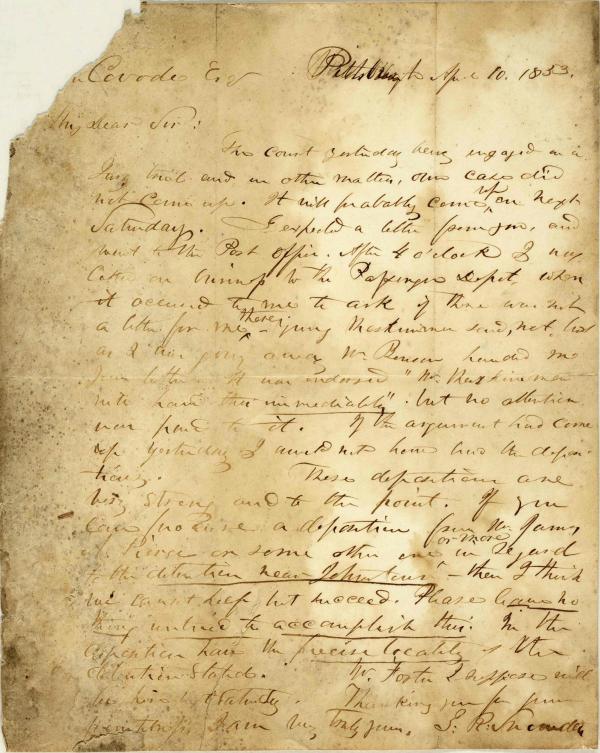 Covode Esq Pittsburgh Apl 10. 1853.
My Dear Sir:
The court yesterday being engaged in a
Jury trial and in other matters, our case did
not come up. It will probably come up on next
Saturday. I expected a letter from you, and
went to the Post office. After 4 o'clock I was
called on business to the Passenger Depot, when
it occured to me to ask if there was not
a letter for me there; young said, not, but
as I was going away Mr. handed me
your letter. It was endorsed "Mr.
will have this immediately", but no attention
was paid to it. If the argument had come
up yesterday I would not have had the deposi-
tions. These depositions are
very strong and to the point. If you
can procure a deposition from Mr. James
Pierce or some other one or more in regard
to the detention near Johnstown, - then I think
we cannot help but succeed. Please leave no
thing undone to accomplish this. In the
deposition have the precise locality of the
detention stated. Mr. Foster I suppose will
be here Saturday. Thanking you for your
I am very truly yours, J. R.